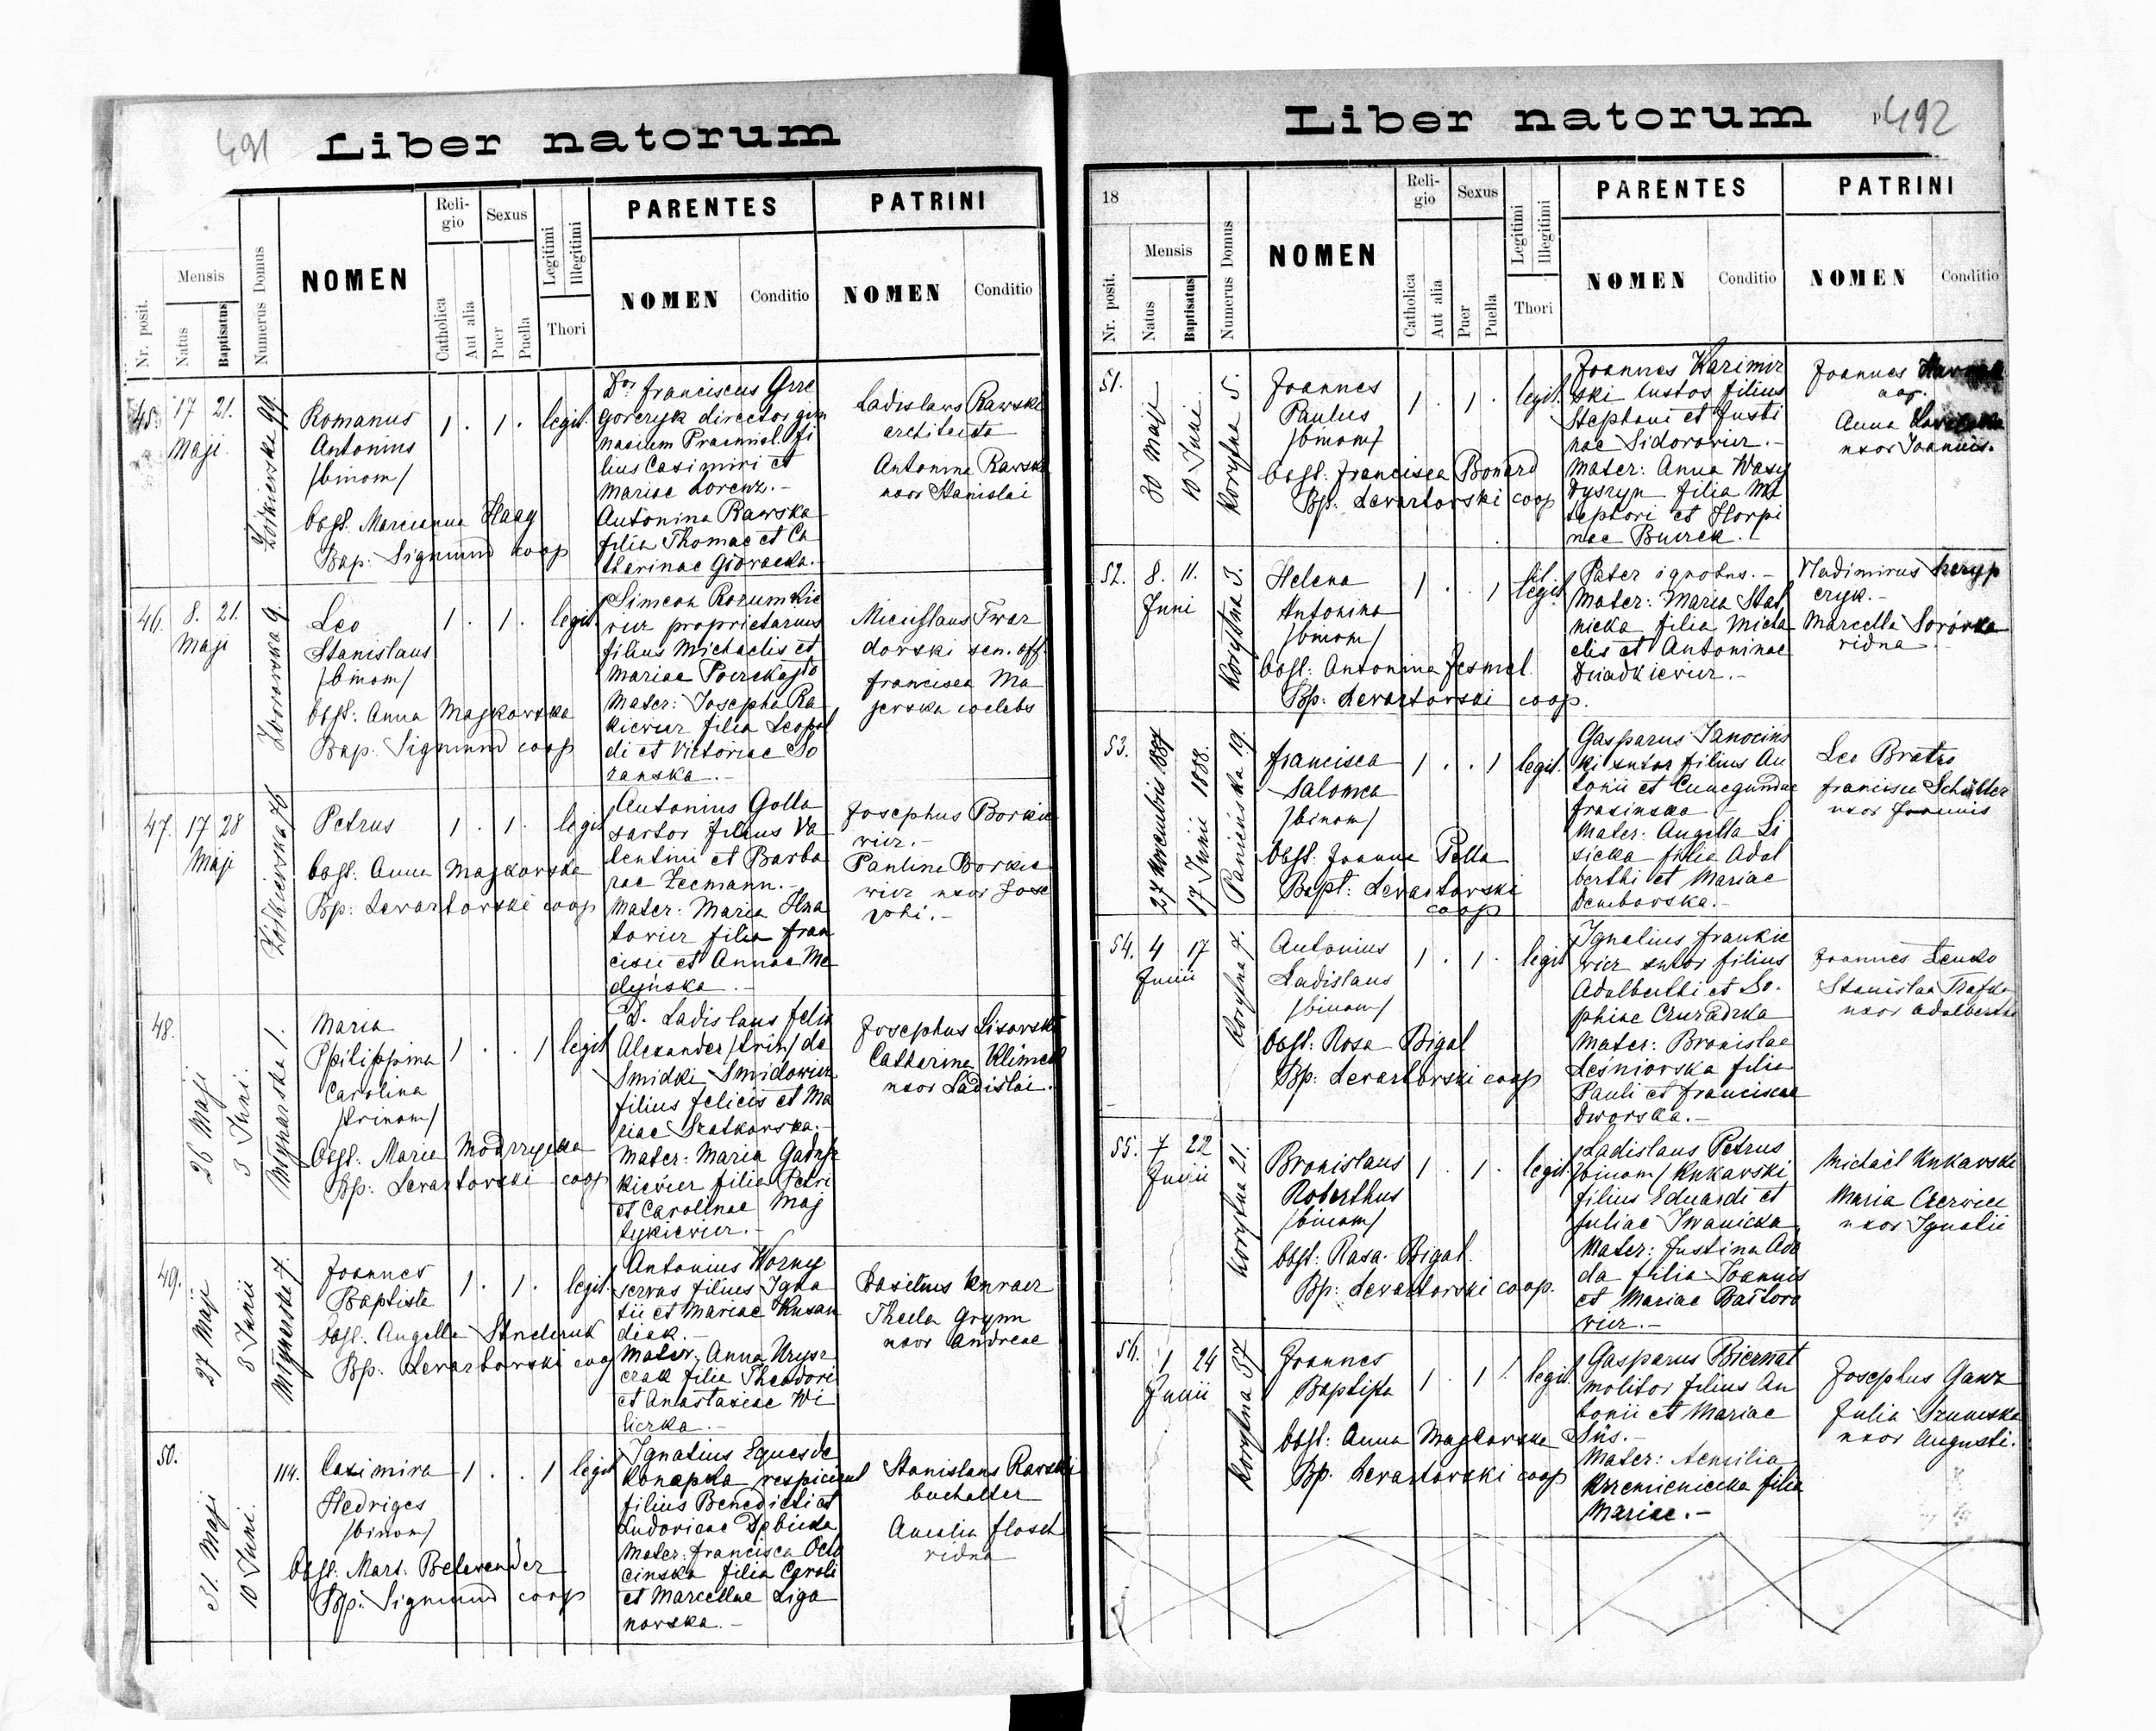 491
Liber natorum
Nr. posit.
Mensis
Natus
Baptisatus
Numerus Domus
NOMEN
Reli-
gio
Catholica
Aut alia
Sexus
Puer
Puella
Legitimi
Illegitimi
Thori
PARENTES
NOMEN
Conditio
PATRINI
NOMEN
Conditio
45.
17 21.
Maji.
99.
Romanus
Antonius
/binom/
1 . 1 .
legit.
obst. Marcianna Haag
Bap: Sigmund coop
Dr. Franciscus Grze
gorczyk director gym
nasium fi
lius Casimiri et
Mariae Lorenz.-
Antonina Rawska
filia Thomae et Ca
tharinae
Ladislaus Rawski
architecto
Antonina Rawska
uxor Stanislai
46.
8. 21.
Maji
9.
Leo
Stanislaus
/binom/
1 . 1 .
legit.
obst: Anna Majkowska
Bap: Sigmund coop
Simeon Rozumkie
wicz proprietarius
filius Michaelis et
Mariae
Mater: Josepha Ra
kiewicz filia Leopol
di et Victoriae So
zanska.-
Miecislaus Twar
dowski sen. off.
Francisca Ma
jerska coelebs
47.
17 28
Maji
Żółkiewska 76
Petrus
1 . 1 .
legit
obst. Anna Majkowska
Bp: Lewartowski coop
Antonius Golla
sartor filius Va
lentini et Barba
rae Zeemann.-
Mater: Maria Hna
towicz filia Fran
cisci et Annae Me
dyńska.-
Josephus Borkie
wicz.-
Paulina Borkie
wicz uxor Jose
phi.-
48.
26 Maji
3 Juni.
Młynarska 1.
Maria
Philippina
Carolina
/trinom/
1 . . 1
legit
Obst. Maria Modrzycka
Bp: Lewartowski coop
D. Ladislaus Felix
Alexander /trin/ de
Smidki Smidowicz
filius Felicis et Ma
riae Szatkowska.-
Mater: Maria
kiewicz filia Petri
et Carolinae Maj
tykiewicz.-
Josephus Lisowski
Catharina Klimek
uxor Ladislai.
49.
27 Maji
8 Junii
Młynarska 7.
Joannes
Baptista
1 . 1 .
legit.
obst. Angella
Bp: Lewartowski coop
Antonius Worny
servus filius Igna
tii et Mariae Rusan
diak.-
Mater: Anna Urysz
czak filia Theodori
et Anastasiae Wi
licrka.-
Basilius
Thecla Grynn
uxor Andreae
50.
31. Maji
10 Juni.
114.
Casimira
Hedriges
/binom/
1 . . 1
legit
Obst. Mart. Beleвender
Bp: Sigmund coop
Ignatius Eques de
Konopka respicient
filius Benedicti et
Ludovicae Dębicka
Mater: Francisca Octa
cinska filia Caroli
et Marcellae Liga
nowska.-
Stanislaus Rawski
buchalter
Amalia Flosch
vidna
492
Liber natorum
18
Nr. posit.
Mensis
Natus
Baptisatus
Numerus Domus
NOMEN
Reli-
gio
Catholica
Aut alia
Sexus
Puer
Puella
Legitimi
Illegitimi
Thori
PARENTES
NOMEN
Conditio
PATRINI
NOMEN
Conditio
51.
30 Maji
10 Juni
Korytna 5.
Joannes
Paulus
/binom/
1 . 1 .
legit.
obst. Francisca Bonard
Bp: Lewartowski coop
Joannes Kazimir
ski custos filius
Stephani et Justi
nae Sidorowicz.-
Mater: Anna Wasy
dyszyn filia Ni
cephori et Horpi
nae
Joannes
Anna
uxor Joannis.
52.
8. 11.
Juni
Korytna 3.
Helena
Antonina
/binom/
1 . . 1
il.
legit.
obst. Antonina
Bp: Lewartowski coop.
Pater ignotus.-
Mater: Maria
nicka filia Micha
elis et Antoninae
Dziadkiewicz.-
Vladimirus
czyk.-
Marcella
vidna.-
53.
27 Novembris 1887
17 Junii 1888.
Panieńska 19.
Francisca
Salomea
/binom/
1 . . 1
legit.
Obst. Joanna Pella
Bapt: Lewartowski
coop
Gasparus Janocins
ki sutor filius An
tonii et Cunegundae
Frasinska.-
Mater: Angella Li
sicka filia Adal
berthi et Mariae
Dembowska.-
Leo Bratro
Francisca Schütter
uxor Joannis
54.
4 17
Junii
Korytna 7.
Antonius
Ladislaus
/binom/
1 . 1 .
legit
obst: Rosa Bigal
Bp: Lewartowski coop
Ignatius Frankie
wicz sutor filius
Adalberthi et So.
phiae
Mater: Bronislae
Leśniowska filia
Pauli et Franciscae
Dworska.-
Joannes
Stanislaa
uxor Adalberthi
55.
7 22
Junii
Korytna 21.
Bronislaus
Roberthus
/binom/
1 . 1 .
legit.
obst: Rosa Bigal.
Bp: Lewartowski coop.
Ladislaus Petrus
/binom/ Kukawski
filius Eduardi et
Juliae Iwanicka
Mater: Justina Ada
da filia Joannis
et Mariae
wicz.-
Michaël Kukawski
Maria
uxor Ignatii
56.
1 24
Junii
Korytna 37
Joannes
Baptista
1 . 1 .
legit.
obst: Anna Majkowska
Bp: Lewartowski coop
Gasparus Biernat
molitor filius An
tonii et Mariae
Siis.-
Mater: Aemilia
Krzemieniecka filia
Mariae.-
Josephus Ganz
Julia Szumska
uxor Augusti.